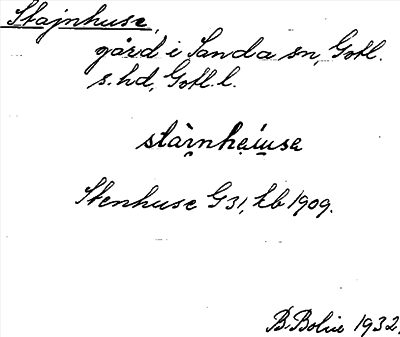 Stajnhuse,
gård i Sanda sn, Gotl.
s. hd, Gotl. l.
Stenhuse G 31, kb 1909.
B. Bolin 1932.